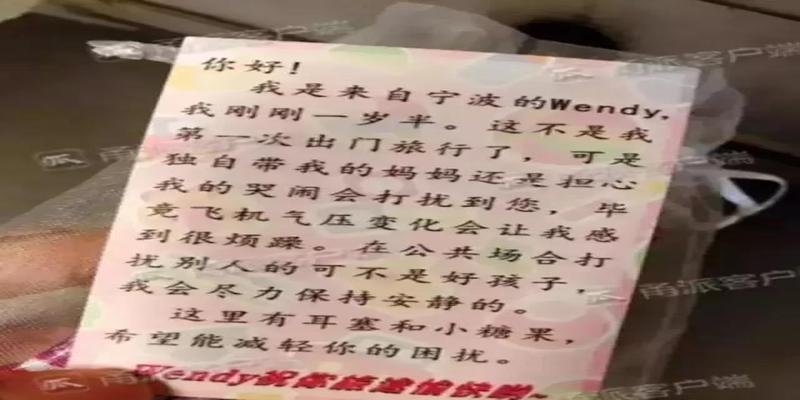 你好!
我是来自宁波的Wendy,
我刚刚一岁半。这不是我
第一次出门旅行了,可是
独自带我的妈妈还是担心
我的哭闹会打扰到您,毕
竟飞机气压变化会让我感
到很烦躁。在公共场合打
扰别人的可不是好孩子,
我会尽力保持安静的。
这里有耳塞和小糖果,
希望能减轻你的困扰。
Wendy祝你旅途愉快哟~
甬派客户端
甬派客户端
甬派客户端
甬派客户端
甬派客户端